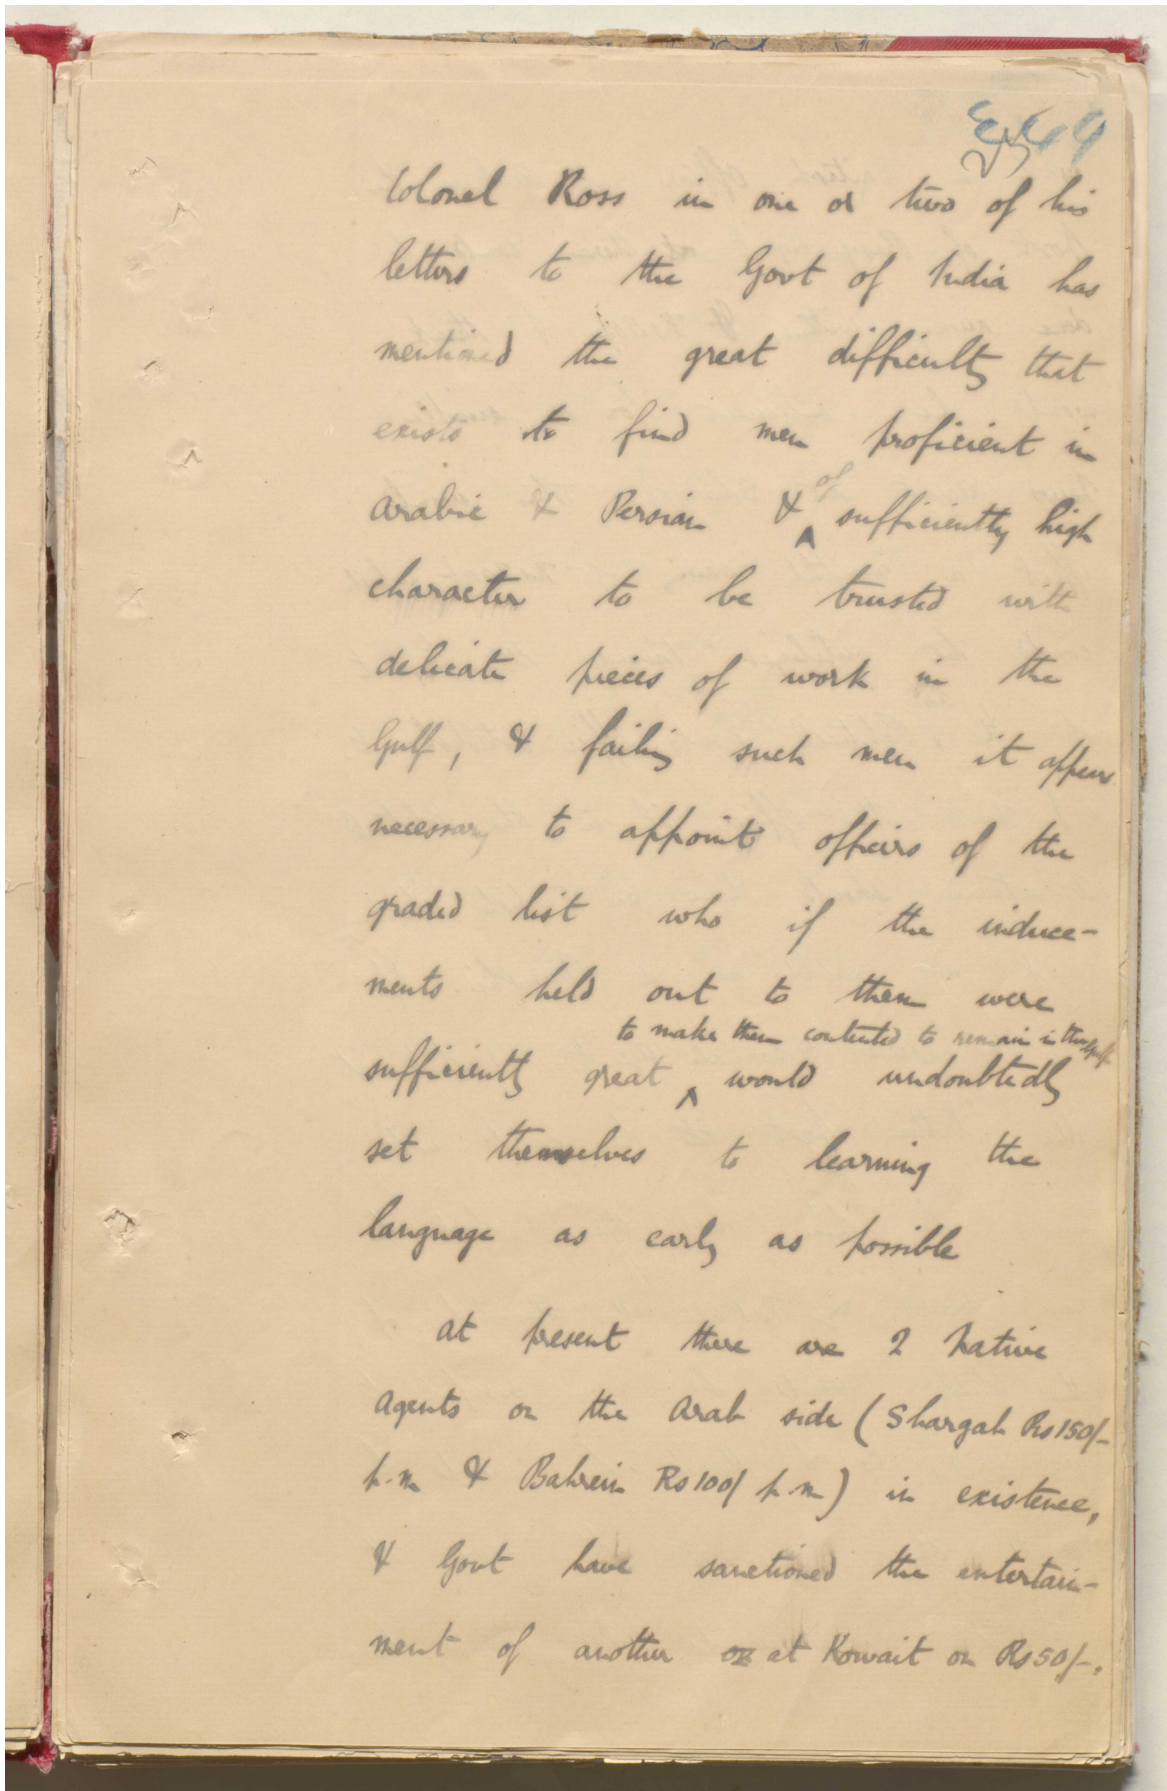 Colonel Ross in one or two of his
letters to the Govt of India has
mentioned the great difficulty that
exists to find men proficient in
Arabic & Persian & of sufficiently high
character to be trusted with
delicate pieces of work in the
Gulf, & failing such men it appears
necessary to appoint officers of the
graded list who if the induce-
ments held out to them were
to make them contented to remain in the Gulf
sufficiently great ^ would undoubtedly
set themselves to learning the
language as early as possible
At present there are 2 Native
Agents on the Arab side (Shargah Rs 150/-
p.m & Bahrein Rs 100/ p.m) in existence,
& Govt have sanctioned the entertain-
ment of another at Kowait on Rs 50/-.